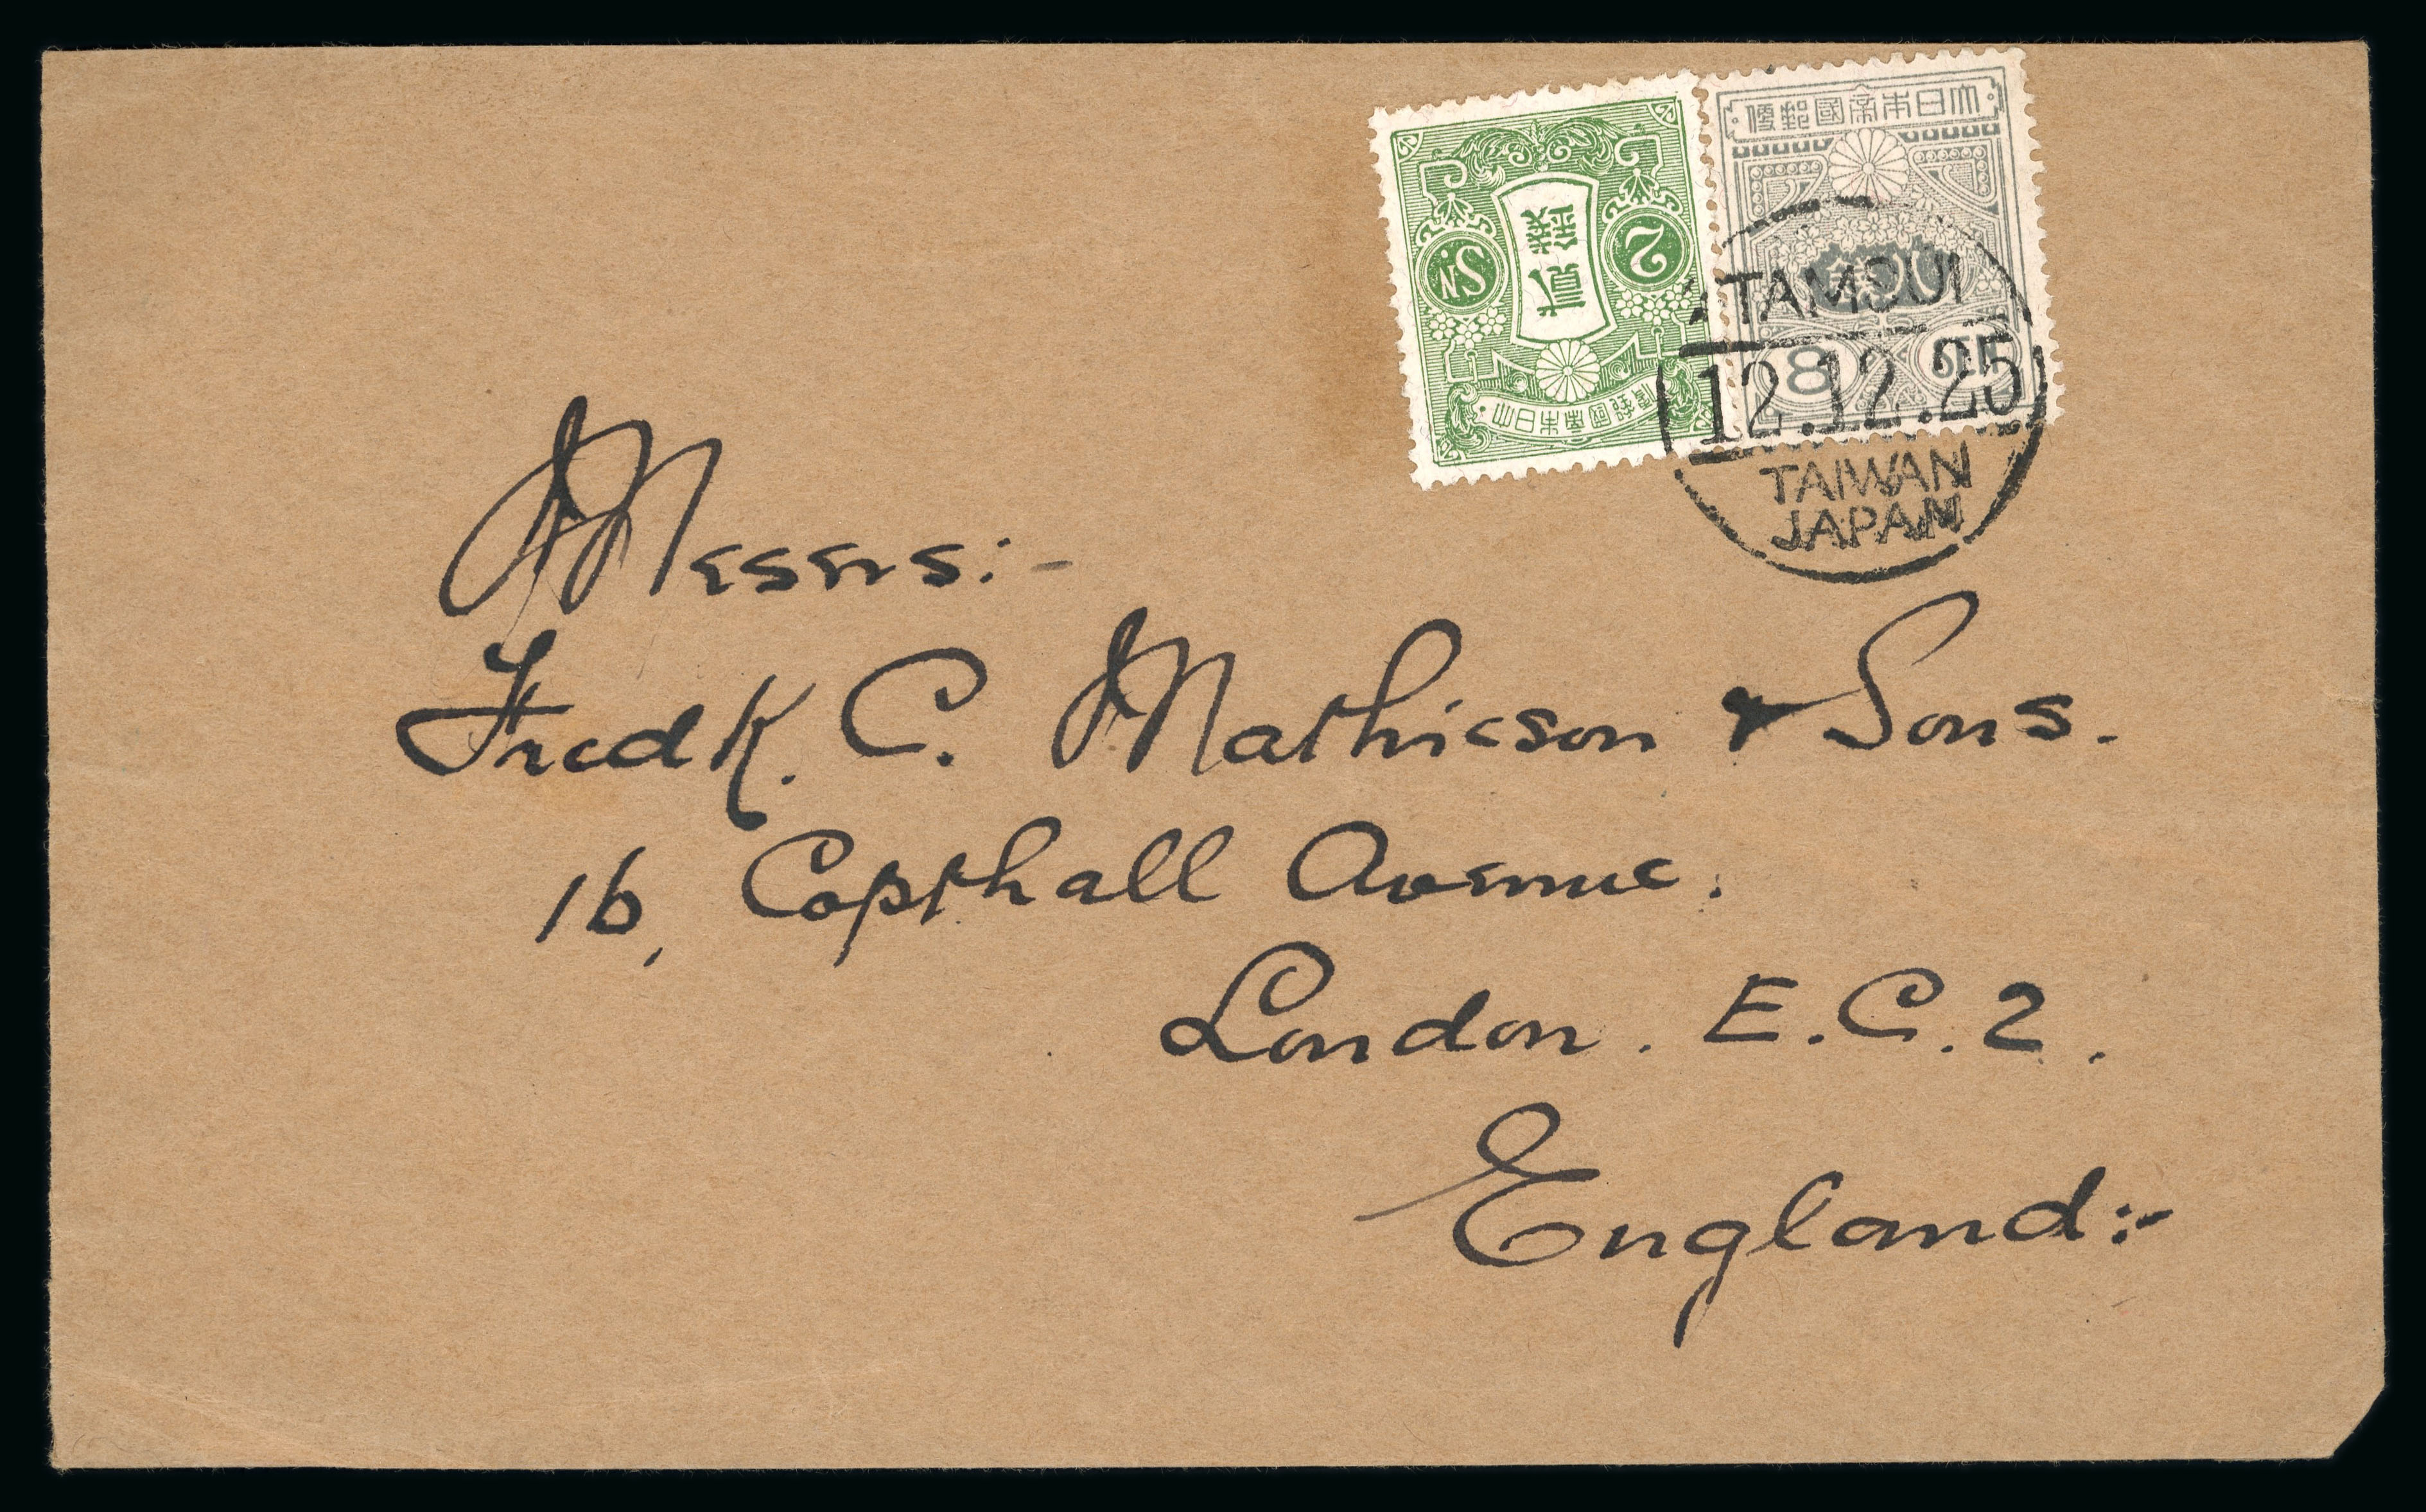 大日本帝國郵便
8 SEN
大日本帝國郵便
貳錢
2 SN
TAMSUI
12.12.25
TAIWAN
JAPAN
Messrs:-
Fredk. C. Mathieson & Sons.
16, Copthall Avenue.
London. E.C.2.
England:-